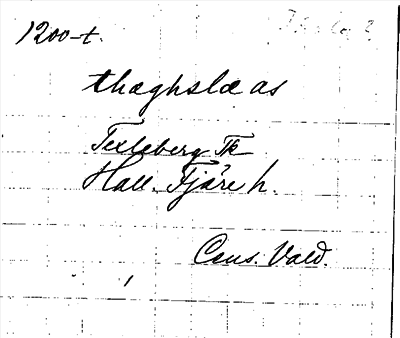 1200-t.
thæghslæ as
Texleberg Tk
Hall. Fjäre h.
Cens. Vald.